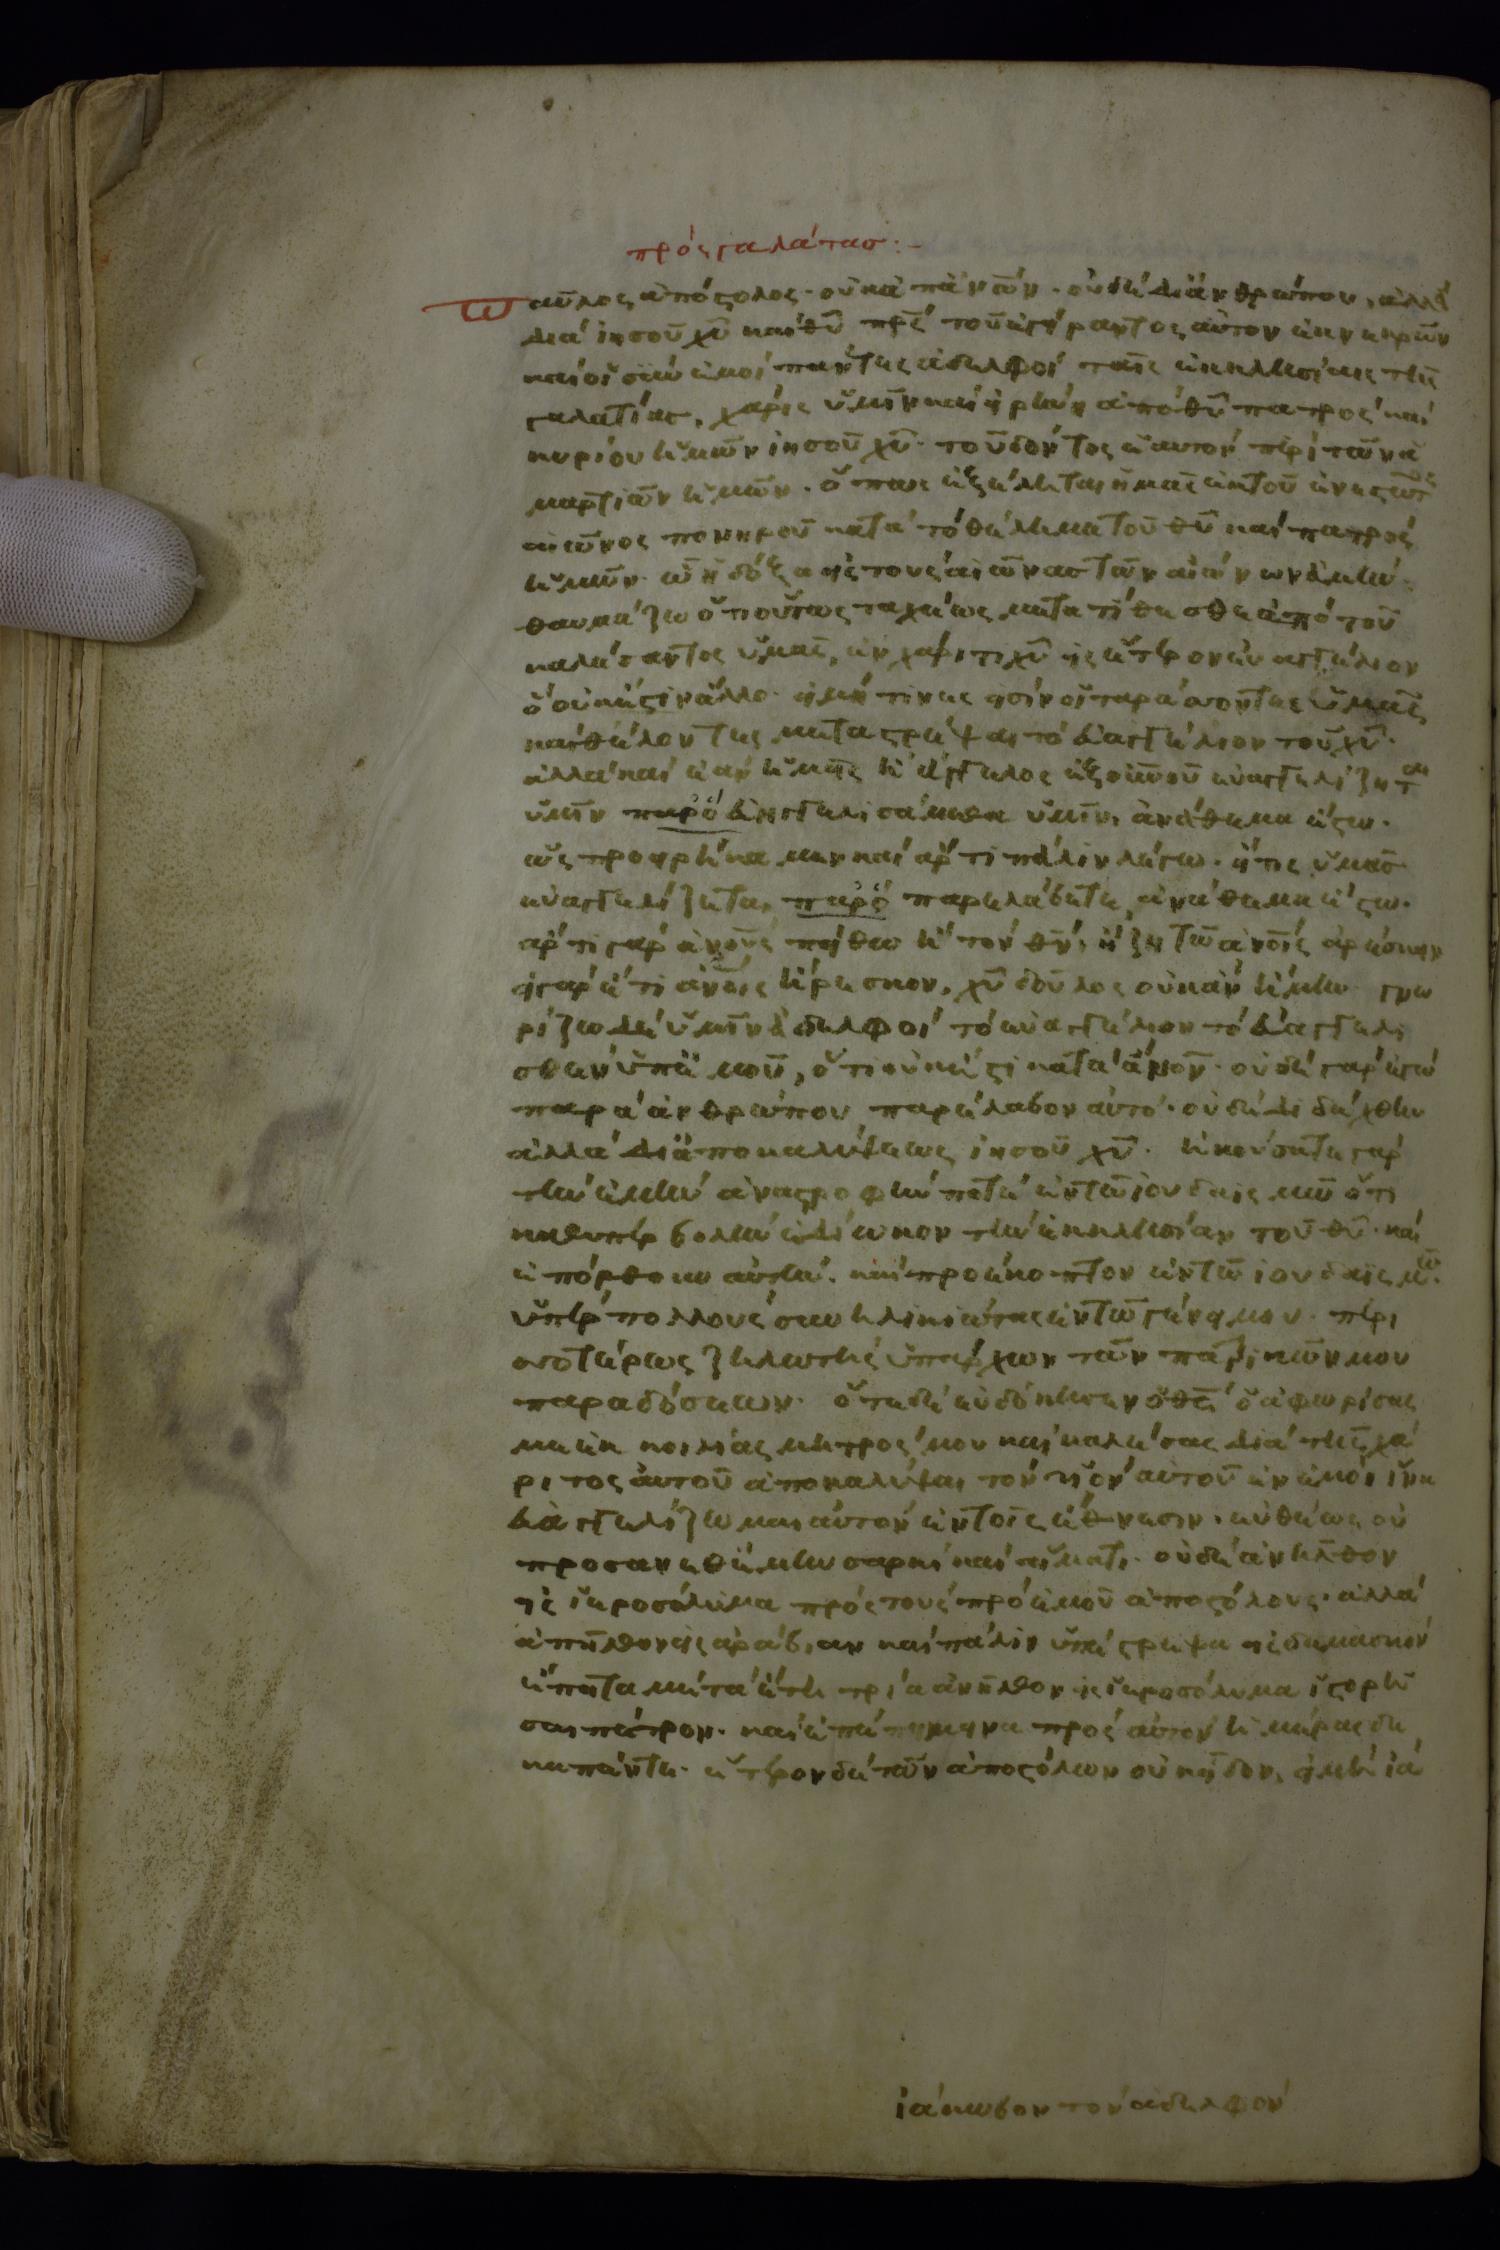 πρός γαλάτας :-
Παῦλος ἀπόστολος· οὐκ ἀπ ἀνῶν· οὐδὲ δι ἀνθρώπου, ἀλλὰ
διὰ ἰησοῦ χυ καὶ θυ πρς τοῦ ἐγείραντος αὐτον ἐκ νεκρῶν
καὶ οἱ σὺν ἐμοὶ πάντες ἀδελφοὶ ταῖς ἐκκλησίαις τῆς
γαλατίας, χάρις ὑμῖν καὶ εἰρήνη ἀπὸ θυ πατρος καὶ
κυρίου ἡμῶν ἰησοῦ χυ· τοῦ δόντος ἑαυτον περὶ τῶν ἁ
μαρτιῶν ἡμῶν· ὅπως ἐξέληται ἡμᾶς ἐκ τοῦ ἐνεστῶτος
αἰῶνος πονηροῦ κατὰ τὸ θέλημα τοῦ θυ καὶ πατρὸς
ἡμῶν· ᾧ ἡ δόξα εἰς τοὺς αἰῶνας τῶν αἰώνων ἀμήν·
θαυμάζω ὅτι οὕτως ταχέως μετατίθεσθε ἀπὸ τοῦ
καλέσαντος ὑμᾶς, ἐν χάριτι χυ εἰς ἕτερον εὐαγγέλιον
ὃ οὐκ ἔστιν ἄλλο· εἰ μή τινες εἰσὶν οἱ ταράσσοντες ὑμᾶς
καὶ θέλοντες μεταστρέψαι τὸ εὐαγγέλιον τοῦ χυ·
ἀλλὰ καὶ ἐὰν ἡμεῖς ἢ ἄγγελος ἐξ οὐνοῦ εὐαγγελίζηται
ὑμῖν παρ ὃ εὐηγγελισάμεθα ὑμῖν, ἀνάθεμα ἔστω·
ὡς προειρήκαμεν καὶ ἄρτι πάλιν λέγω· εἴ τις ὑμᾶς
εὐαγγελίζεται παρ ὃ παρελάβετε, ἀνάθεμα ἔστω·
ἄρτι γὰρ ἀνους πείθω ἢ τὸν θν, ἢ ζητῶ ἀνοις ἀρέσκειν
εἰ γὰρ ἔτι ἀνοις ἤρεσκον, χυ δοῦλος οὐκ ἂν ἤμην· γνω
ρίζω δὲ ὑμῖν ἀδελφοὶ τὸ εὐαγγέλιον τὸ εὐαγγελι
σθὲν ὑπ ἐμοῦ, ὅτι οὐκ ἔστι κατὰ ἄνον· οὐδὲ γὰρ ἐγὼ
παρὰ ἀνθρώπου παρέλαβον αὐτό· οὐδὲ ἐδιδάχθην
ἀλλὰ δι ἀποκαλύψεως ἰησοῦ χυ· ἠκούσατε γὰρ
τὴν ἐμὴν ἀναστροφὴν ποτὲ ἐν τῶ ἰουδαϊσμῶ ὅτι
καθ υπερβολὴν ἐδίωκον τὴν ἐκκλησίαν τοῦ θυ· καὶ
ἐπόρθουν αὐτήν· καὶ προέκοπτον ἐν τῶ ἰουδαϊσμῶ·
ὑπὲρ πολλοὺς συνηλικιώτας ἐν τῶ γένει μου· περι
σσοτέρως ζηλωτὴς ὑπάρχων τῶν πατρικῶν μου
παραδόσεων· ὅτε δὲ εὐδόκησεν ὁ θς ὁ ἀφωρίσας
με ἐκ κοιλίας μητρος μου καὶ καλέσας διὰ τῆς χά
ριτος αὐτοῦ ἀποκαλύψαι τὸν υἱὸν αὐτοῦ ἐν ἐμοὶ ἵνα
εὐαγγελίζωμαι αὐτὸν ἐν τοῖς ἔθνεσιν· εὐθέως οὐ
προσανεθέμην σαρκὶ καὶ αἵματι· οὐδὲ ἀνῆλθον
εἰς ἱεροσόλυμα πρὸς τοὺς πρὸ ἐμοῦ ἀποστόλους· ἀλλὰ
ἀπῆλθον εἰς ἀραβίαν καὶ πάλιν ὑπέστρεψα εἰς δαμασκόν
ἔπειτα μετὰ ἔτη τρία ἀνῆλθον εἰς ἱεροσόλυμα ἱστορῆ
σαι πέτρον· καὶ ἐπέμεινα πρὸς αὐτὸν ἡμέρας δε
καπέντε· ἕτερον δὲ τῶν ἀποστόλων οὐκ εἶδον, εἰ μὴ ἰά
ἰάκωβον τὸν ἀδελφὸν